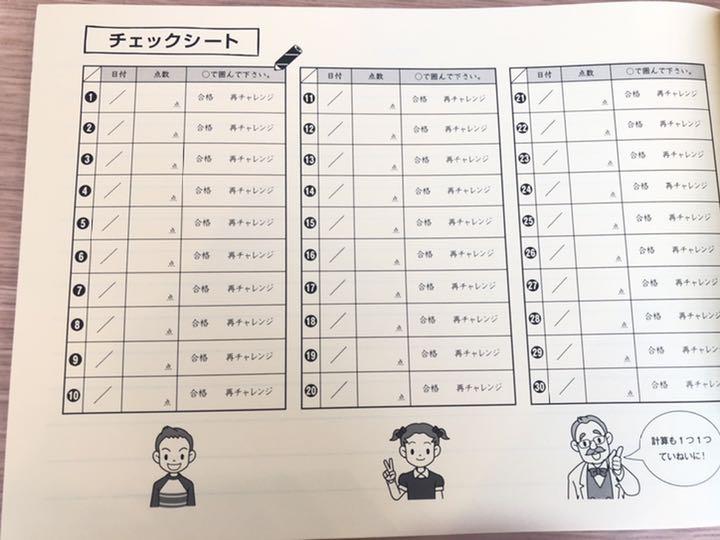 チェックシート
日付 点数 ○で囲んで下さい。
1 / 点 合格 再チャレンジ
2 / 点 合格 再チャレンジ
3 / 点 合格 再チャレンジ
4 / 点 合格 再チャレンジ
5 / 点 合格 再チャレンジ
6 / 点 合格 再チャレンジ
7 / 点 合格 再チャレンジ
8 / 点 合格 再チャレンジ
9 / 点 合格 再チャレンジ
10 / 点 合格 再チャレンジ
日付 点数 ○で囲んで下さい。
11 / 点 合格 再チャレンジ
12 / 点 合格 再チャレンジ
13 / 点 合格 再チャレンジ
14 / 点 合格 再チャレンジ
15 / 点 合格 再チャレンジ
16 / 点 合格 再チャレンジ
17 / 点 合格 再チャレンジ
18 / 点 合格 再チャレンジ
19 / 点 合格 再チャレンジ
20 / 点 合格 再チャレンジ
日付 点数 ○で囲んで下さい。
21 / 点 合格 再チャレンジ
22 / 点 合格 再チャレンジ
23 / 点 合格 再チャレンジ
24 / 点 合格 再チャレンジ
25 / 点 合格 再チャレンジ
26 / 点 合格 再チャレンジ
27 / 点 合格 再チャレンジ
28 / 点 合格 再チャレンジ
29 / 点 合格 再チャレンジ
30 / 点 合格 再チャレンジ
計算も1つ1つ
ていねいに!